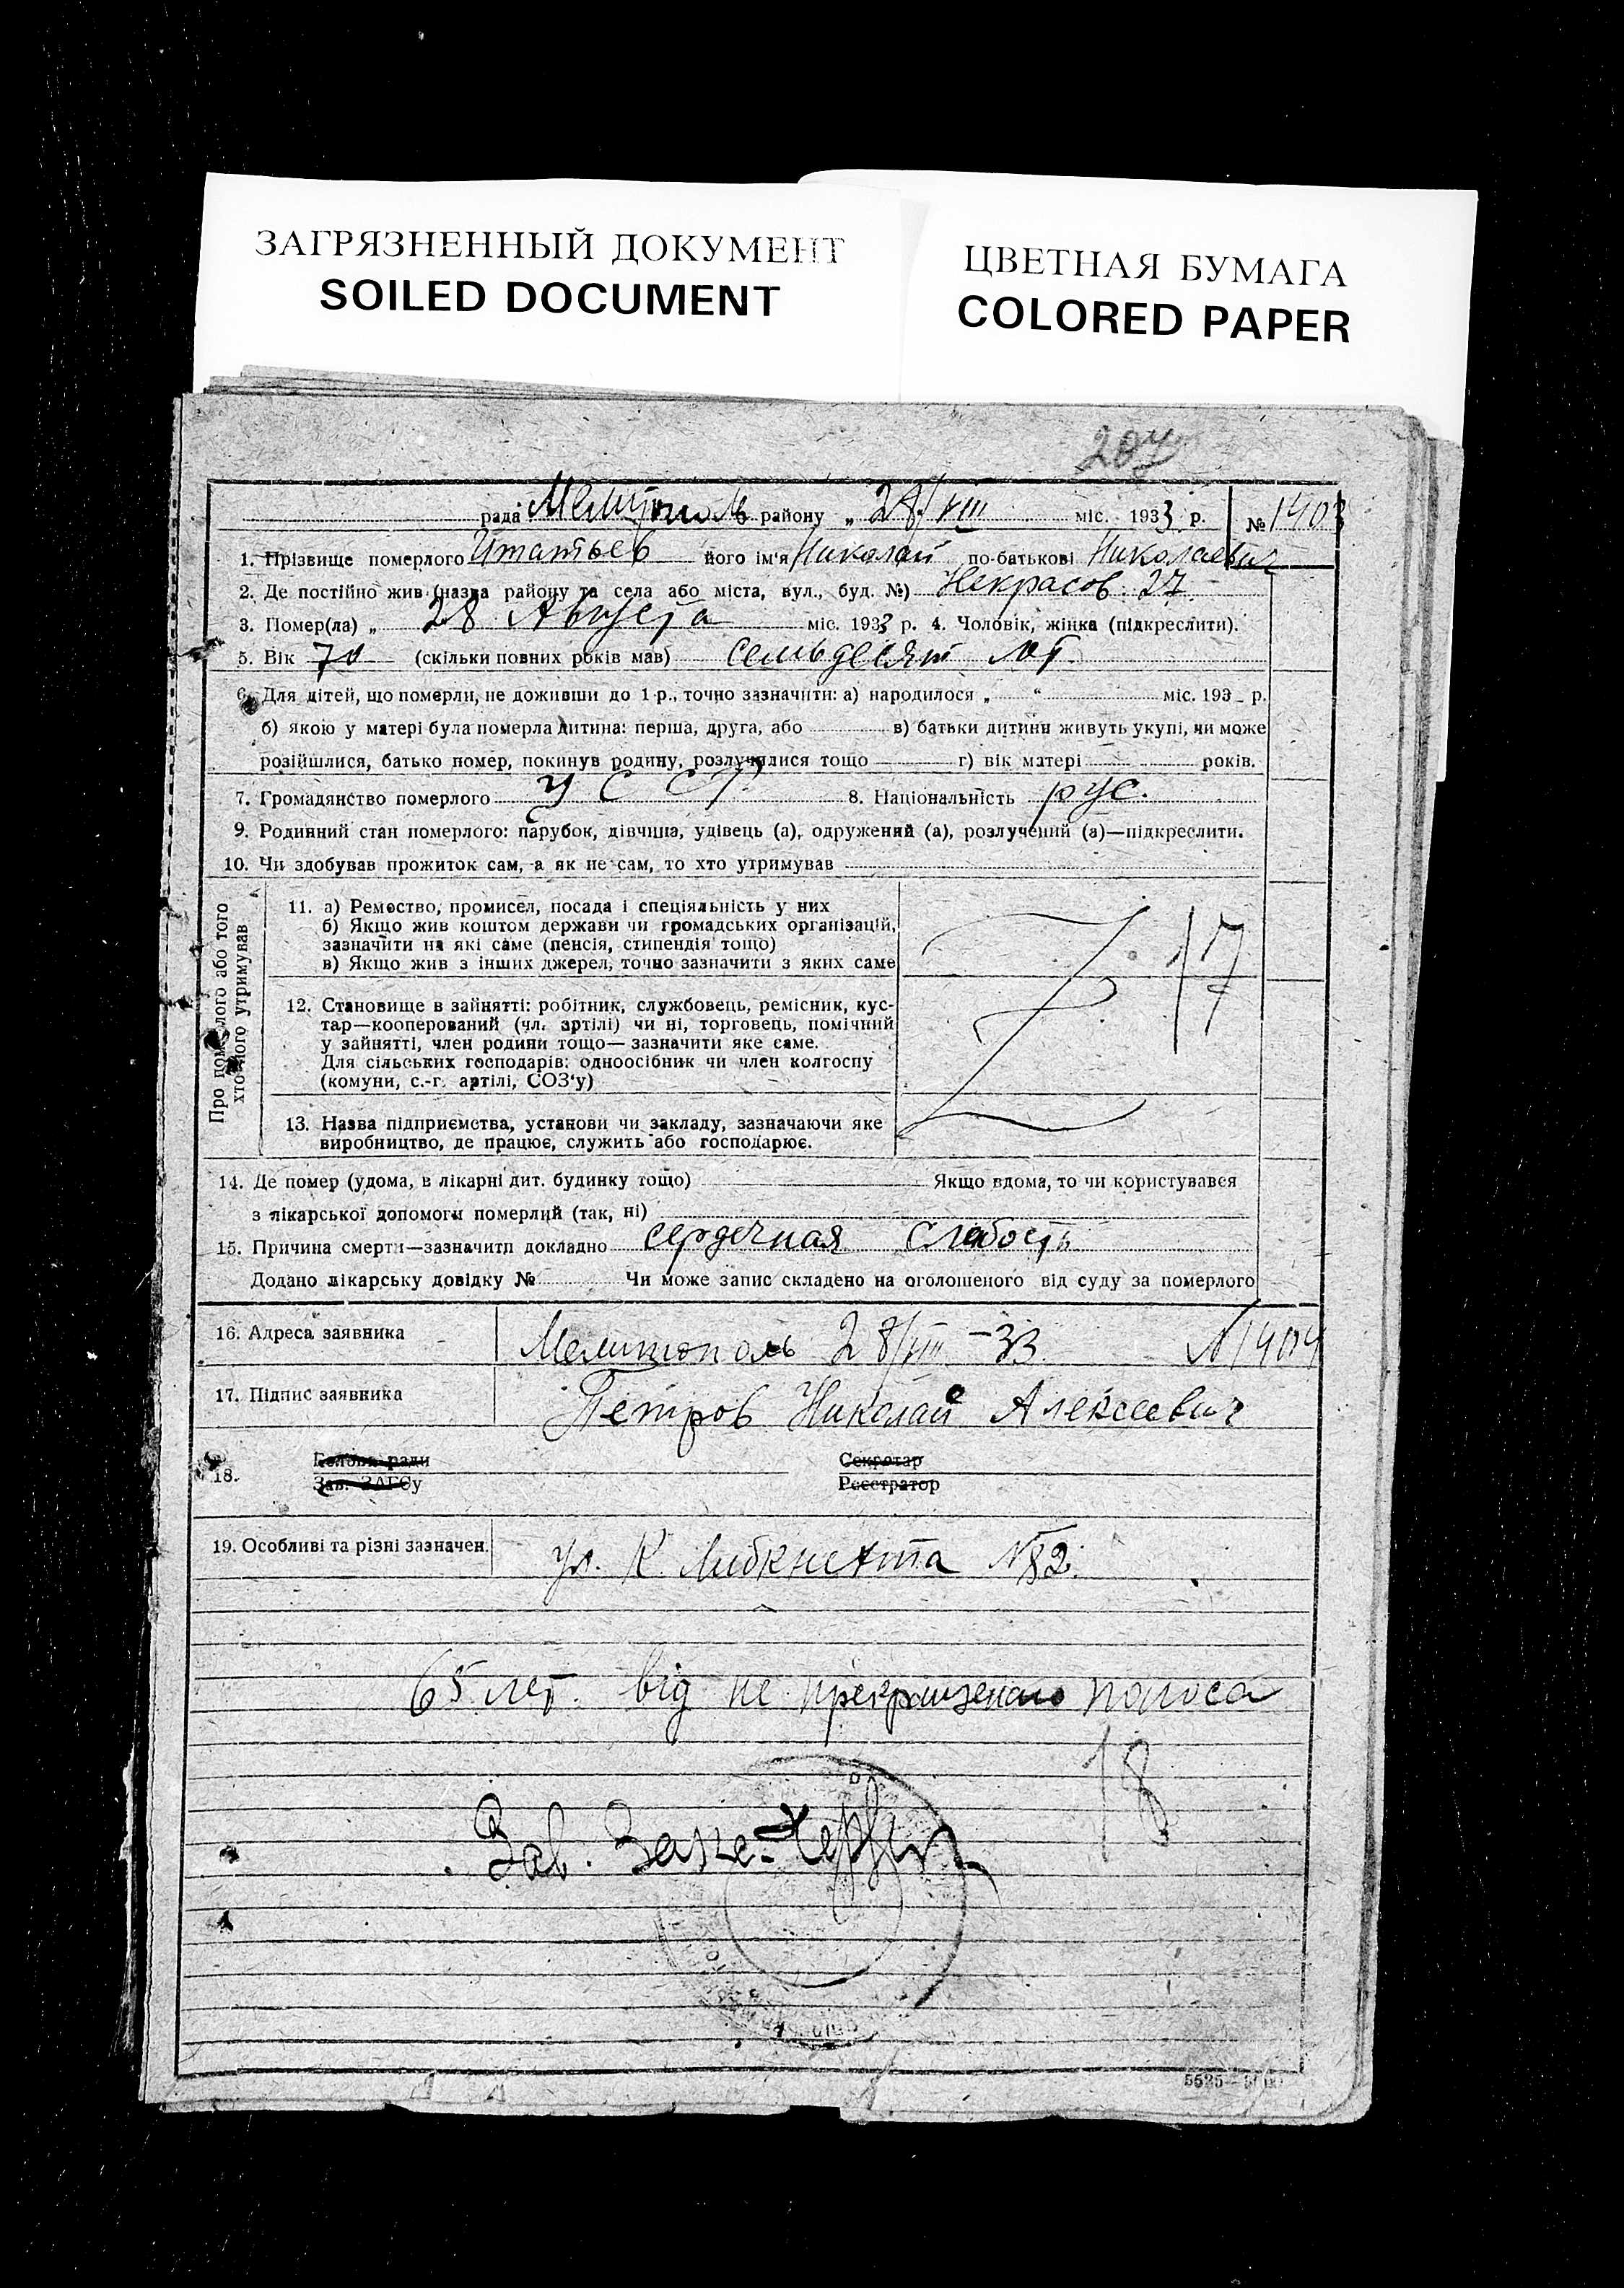 ЗАГРЯЗНЕННЫЙ ДОКУМЕНТ
SOILED DOCUMENT
ЦВЕТНАЯ БУМАГА
COLORED PAPER
207
рада Мелитополь району „ 28/VIII міс. 1933 р. № 1403
1. Прізвище померлого його ім'я Николай по-батькові Николаевич
2. Де постійно жив (назва району та села або міста, вул., буд. №) Некрасов. 27
3. Помер(ла) „ 28 Августа міс. 1933 р. 4. Чоловік, жінка (підкреслити).
5. Вік 70 (скільки повних років мав) семьдесят лет.
6. Для дітей, що померли, не доживши до 1 р., точно зазначити: а) народилося „ “ міс. 193 р.
б) якою у матері була померла дитина: перша, друга, або в) батьки дитини живуть укупі, чи може
розійшлися, батько помер, покинув родину, розлучилися тощо г) вік матері років.
7. Громадянство померлого У С С Р. 8. Національність рус.
9. Родинний стан померлого: парубок, дівчина, удівець (а), одружений (а), розлучений (а)—підкреслити.
10. Чи здобував прожиток сам, а як не сам, то хто утримував
Про померлого або того
хто його утримував
11. а) Ремество, промисел, посада і спеціяльність у них
б) Якщо жив коштом держави чи громадських організацій,
зазначити на які саме (пенсія, стипендія тощо)
в) Якщо жив з інших джерел, точно зазначити з яких саме
17
12. Становище в зайнятті: робітник, службовець, ремісник, кус-
тар—кооперований (чл. артілі) чи ні, торговець, помічний
у зайнятті, член родини тощо— зазначити яке саме.
Для сільських господарів: одноосібник чи член колгоспу
(комуни, с.-г. артілі, СОЗ'у)
13. Назва підприємства, установи чи закладу, зазначаючи яке
виробництво, де працює, служить або господарює.
14. Де помер (удома, в лікарні дит. будинку тощо) Якщо вдома, то чи користувався
з лікарської допомоги померлий (так, ні)
15. Причина смерти—зазначити докладно сердечная слабость
Додано лікарську довідку № Чи може запис складено на оголошеного від суду за померлого
16. Адреса заявника Мелитополь 28/VIII–33 №1404
17. Підпис заявника Петров Николай Алексеевич
18. Голова ради Секретар
Зав. ЗАГСу Реєстратор
19. Особливі та різні зазначен. ул. К. Либкнехта №82.
65 лет. від не прекращеного поноса
18
Зав. Загс
5525 –